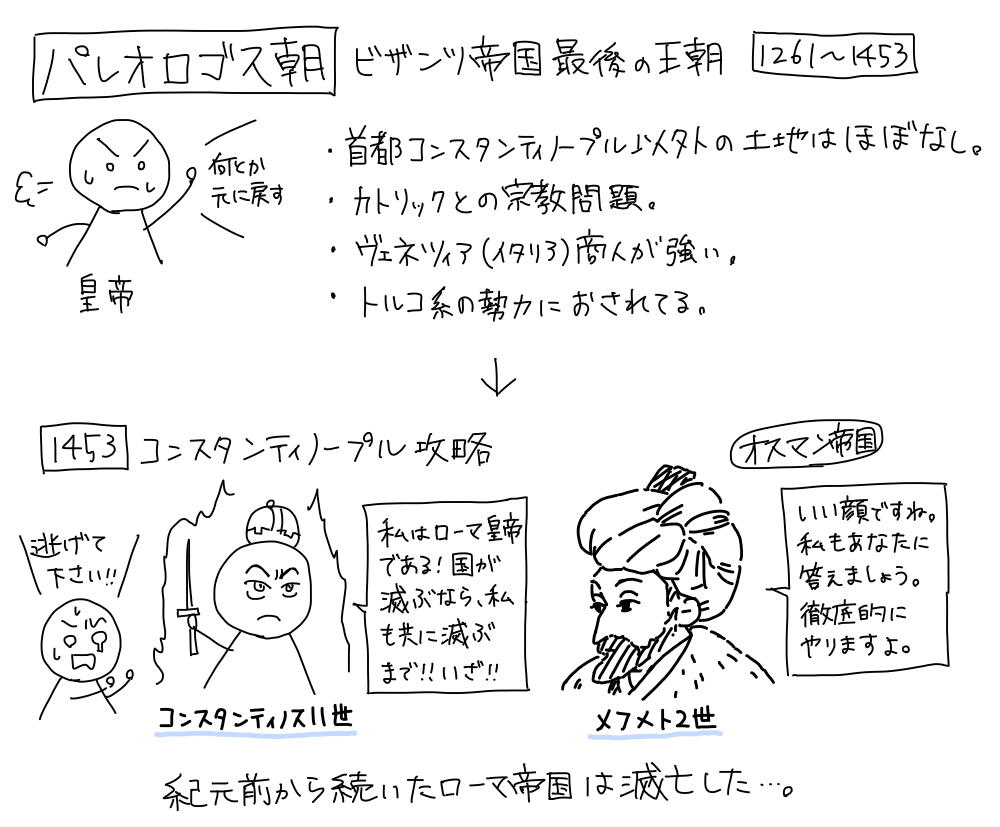 パレオロゴス朝 ビザンツ帝国最後の王朝 1261〜1453
何とか
元に戻す
皇帝
・首都コンスタンティノープル以外の土地はほぼなし。
・カトリックとの宗教問題。
・ヴェネツィア(イタリア)商人が強い。
・トルコ系の勢力におされてる。
↓
1453 コンスタンティノープル攻略
オスマン帝国
逃げて
下さい!!
私はローマ皇帝
である!国が
滅ぶなら、私
も共に滅ぶ
まで!!いざ!!
いい顔ですね。
私もあなたに
答えましょう。
徹底的に
やりますよ。
コンスタンティノス11世
メフメト2世
紀元前から続いたローマ帝国は滅亡した…。